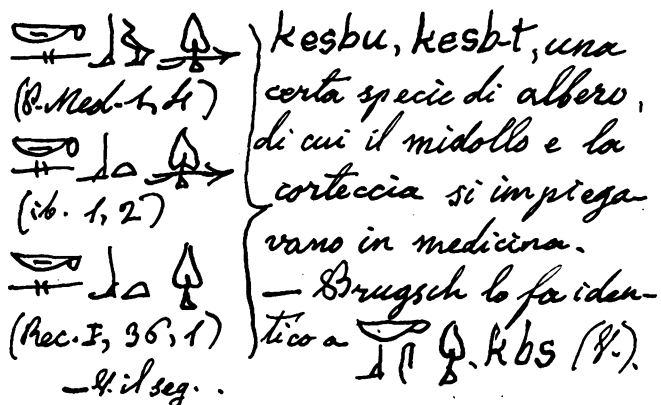 𓎡𓊃𓃀𓅱𓆭
(P. Med. 1, 4)
𓎡𓊃𓃀𓏏𓆭
(ib. 1, 2)
𓎡𓊃𓃀𓏏𓆭
(Rec. I, 36, 1)
— V. il seg. .
kesbu, kesb-t, una
certa specie di albero,
di cui il midollo e la
corteccia si impiega-
vano in medicina.
— Brugsch lo fa iden-
tico a 𓎡𓃀𓋴𓆭. kbs (V.).